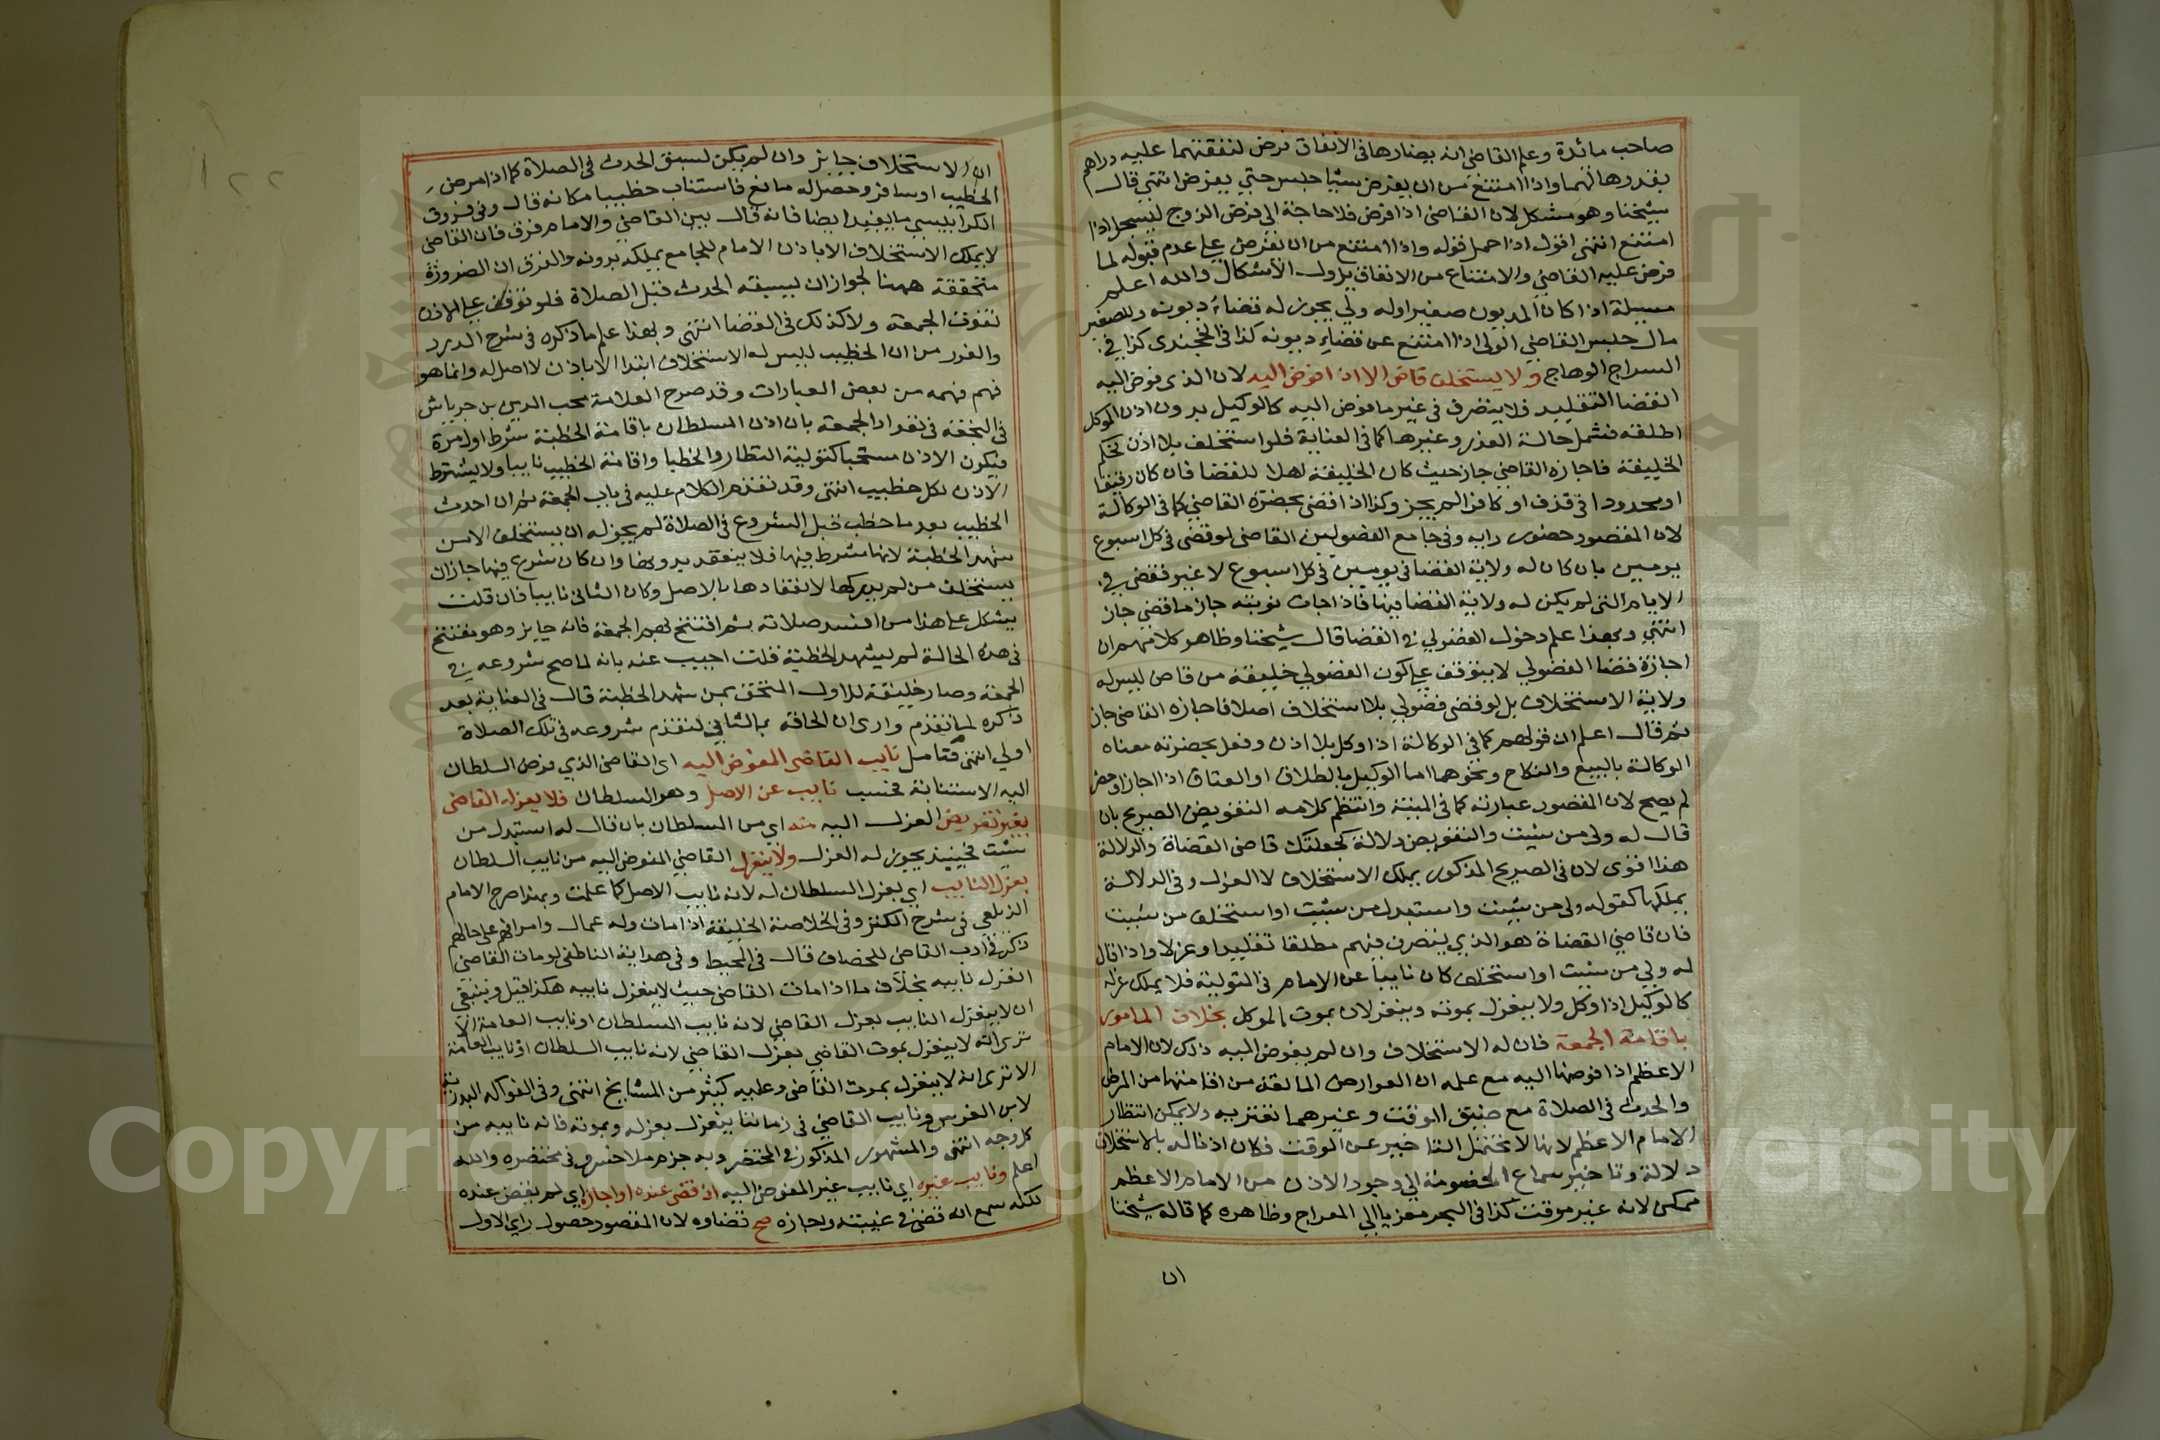 صاحب مائدة وعلم القاضي انه يضارها في الانفاق فرض لنفقتهما عليه دراهم
يقدرها لهما واذا امتنع من ان يفرض شيا حبس حتي يفرض انتهي قال
شيخنا وهو مشكل لان القاضي اذا فرض فلا حاجة الى فرض الزوج ليسجل اذا
امتنع انتهى اقول اذا حمل قوله واذا امتنع من ان يفرض علي عدم قبوله لما
فرض عليه القاضي والامتناع من الانفاق يزول الاشكال والله اعلم
مسيلة اذا كان المديون صغيرا وله ولي يجوز له قضاء ديونه وللصغير
مال حبس القاضي الولى اذا امتنع عن قضاء ديونه كذا في الخجندى كذا في
السراج الوهاج ولا يستخلف قاض الا اذا فوض اليه لان الذي فوض اليه
القضا التقليد فلا يتصرف في غير ما فوض اليه كالوكيل بدون اذن الموكل
اطلقه فشمل حالة العذر وغيرها كما في العناية فلو استخلف بلا اذن فحكم
الخليفة فاجازه القاضي جاز حيث كان الخليفة اهلا للقضا فان كان رقيقا
او محدودا في قذف او كافرا لم يجز وكذا اذا قضى بحضرة القاضي كما في الوكالة
لان المقصود حضور رايه وفي جامع الفصولين القاضي لو قضى في كل اسبوع
يومين بان كان له ولاية القضا في يومين في كل اسبوع لا غير فقضي في
الايام التي لم يكن له ولاية القضا فيها فاذا جات نوبته جاز ما قضي جاز
انتهي وبهذا علم دخول الفضولي في القضا قال شيخنا وظاهر كلامهم ان
اجازة قضا الفضولي لا يتوقف علي كون الفضولي خليفة من قاض ليس له
ولاية الاستخلاف بل لو قضى فضولي بلا استخلاف اصلا فاجازه القاضي جاز
ثم قال اعلم ان قولهم كما في الوكالة اذا وكل بلا اذن وفعل بحضرته معناه
الوكالة بالبيع والنكاح ونحوهما اما الوكيل بالطلاق او العتاق اذا اجاز او حضر
لم يصح لان المقصود عبارته كما في المنية وانتظم كلامه التفويض الصريح بان
قال له ولي من شيت والتفويض دلالة كجعلتك قاضي القضاة والدلالة
هذا اقوى لان في الصريح المذكور يملك الاستخلاف لا العزل وفي الدلالة
يملكها كقوله ولي من شيت واستبدل من شيت او استخلف من شيت
فان قاضي القضاة هو الذي يتصرف فيهم مطلقا تقليدا وعزلا واذا قال
له ولي من شيت او استخلف كان نايبا عن الامام في التولية فلا يملك عزله
كالوكيل اذا وكل ولا ينعزل بموته وينعزلان بموت الموكل بخلاف المامور
باقامة الجمعة فان له الاستخلاف وان لم يفوض اليه ذلك لان الامام
الاعظم اذا فوضها اليه مع علمه ان العوارض المانعة من اقامتها من المرض
والحدث في الصلاة مع ضيق الوقت وغيرهما تعتريه ولا يمكن انتظار
الامام الاعظم لانها لا تحتمل التاخير عن الوقت فكان اذنا له بالاستخلاف
دلالة وتاخير سماع الخصومة الي وجود الاذن من الامام الاعظم
ممكن لانه غير موقت كذا في البحر معزيا الي المعراج وظاهره كما قاله شيخنا
ان
ان الاستخلاف جايز وان لم يكن لسبق الحدث في الصلاة كما اذا مرض
الخطيب او سافر وحصل له مانع فاستناب خطيبا مكانه قال وفي فروق
الكرابيسي ما يفيد ايضا فانه قال بين القاضي والامام فرق فان القاضي
لا يملك الاستخلاف الا باذن الامام للجامع يملكه بدونه والفرق ان الضرورة
متحققة ههنا لجواز ان يسبقه الحدث قبل الصلاة فلو توقف علي الاذن
تفوت الجمعة ولا كذلك في القضا انتهى وبهذا علم ما ذكره في شرح الدرر
والغرر من ان الخطيب ليس له الاستخلاف ابتدا الا باذن لا اصل له وانما هو
فهم فهمه من بعض العبارات وقد صرح العلامة محب الدين بن جرباش
في النجعة في تعداد الجمعة بان اذن السلطان باقامة الخطبة شرط اول مرة
فيكون الاذن مستحبا كتولية النظار والخطبا واقامة الخطيب نايبا ولا يشترط
الاذن لكل خطيب انتهى وقد تقدم الكلام عليه في باب الجمعة ثم ان احدث
الخطيب بعد ما خطب قبل الشروع في الصلاة لم يجز له ان يستخلف الا من
شهد الخطبة لانها شرط فيها فلا ينعقد بدونها وان كان شرع فيها جاز ان
يستخلف من لم يدركها لانعقادها بالاصل وكان الثاني نايبا فان قلت
يشكل على هذا من افسد صلاته ثم افتتح بهم الجمعة فانه جايز وهو مفتتح
في هذه الحالة لم يشهد الخطبة قلت اجيب عنه بانه لما صح شروعه في
الجمعة وصار خليفة للاول التحق بمن شهد الخطبة قال في العناية بعد
ذكره لما تقدم وارى ان الحاقه بالثاني لتقدم شروعه في تلك الصلاة
اولي انتهى فتامل نايب القاضي المفوض اليه اى القاضي الذي فوض السلطان
اليه الاستنابة فحسب نايب عن الاصل وهو السلطان فلا يعزله القاضي
بغير تفويض العزل اليه منه اي من السلطان بان قال له استبدل من
شيت فحينيذ يجوز له العزل ولا ينعزل القاضي المفوض اليه من نايب السلطان
بعزل النايب اي بعزل السلطان له لانه نايب الاصل كما علمت وبهذا صرح الامام
الزيلعي في شرح الكنز وفي الخلاصة الخليفة اذا مات وله عمال وامرا فهم على حالهم
ذكر في ادب القاضي للخصاف قال في المحيط وفي هداية الناطفي لو مات القاضي
انعزل نايبه بخلاف ما اذا مات القاضي حيث لا ينعزل نايبه هكذا قيل وينبغي
ان لا ينعزل النايب بعزل القاضي لانه نايب السلطان او نايب العامة الا
ترى انه لا ينعزل بموت القاضي بعزل القاضي لانه نايب السلطان او نايب العامة
الا ترى انه لا ينعزل بموت القاضي وعليه كثير من المشايخ انتهى وفي الفواكه البدرية
لابن الغرس ونايب القاضي في زماننا ينعزل بعزله وبموته فانه نايبه من
كل وجه انتهى والمشهور المذكور في المختصر وبه جزم ملا خسرو في مختصره والله
اعلم ونايب غيره اي نايب غير المفوض اليه ان قضى عنده او اجازه اي لم يقض عنده
لكنه سمع انه قضى في غيبته واجازه صح قضاوه لان المقصود حصول راي الاول
Copyright © King Saud University